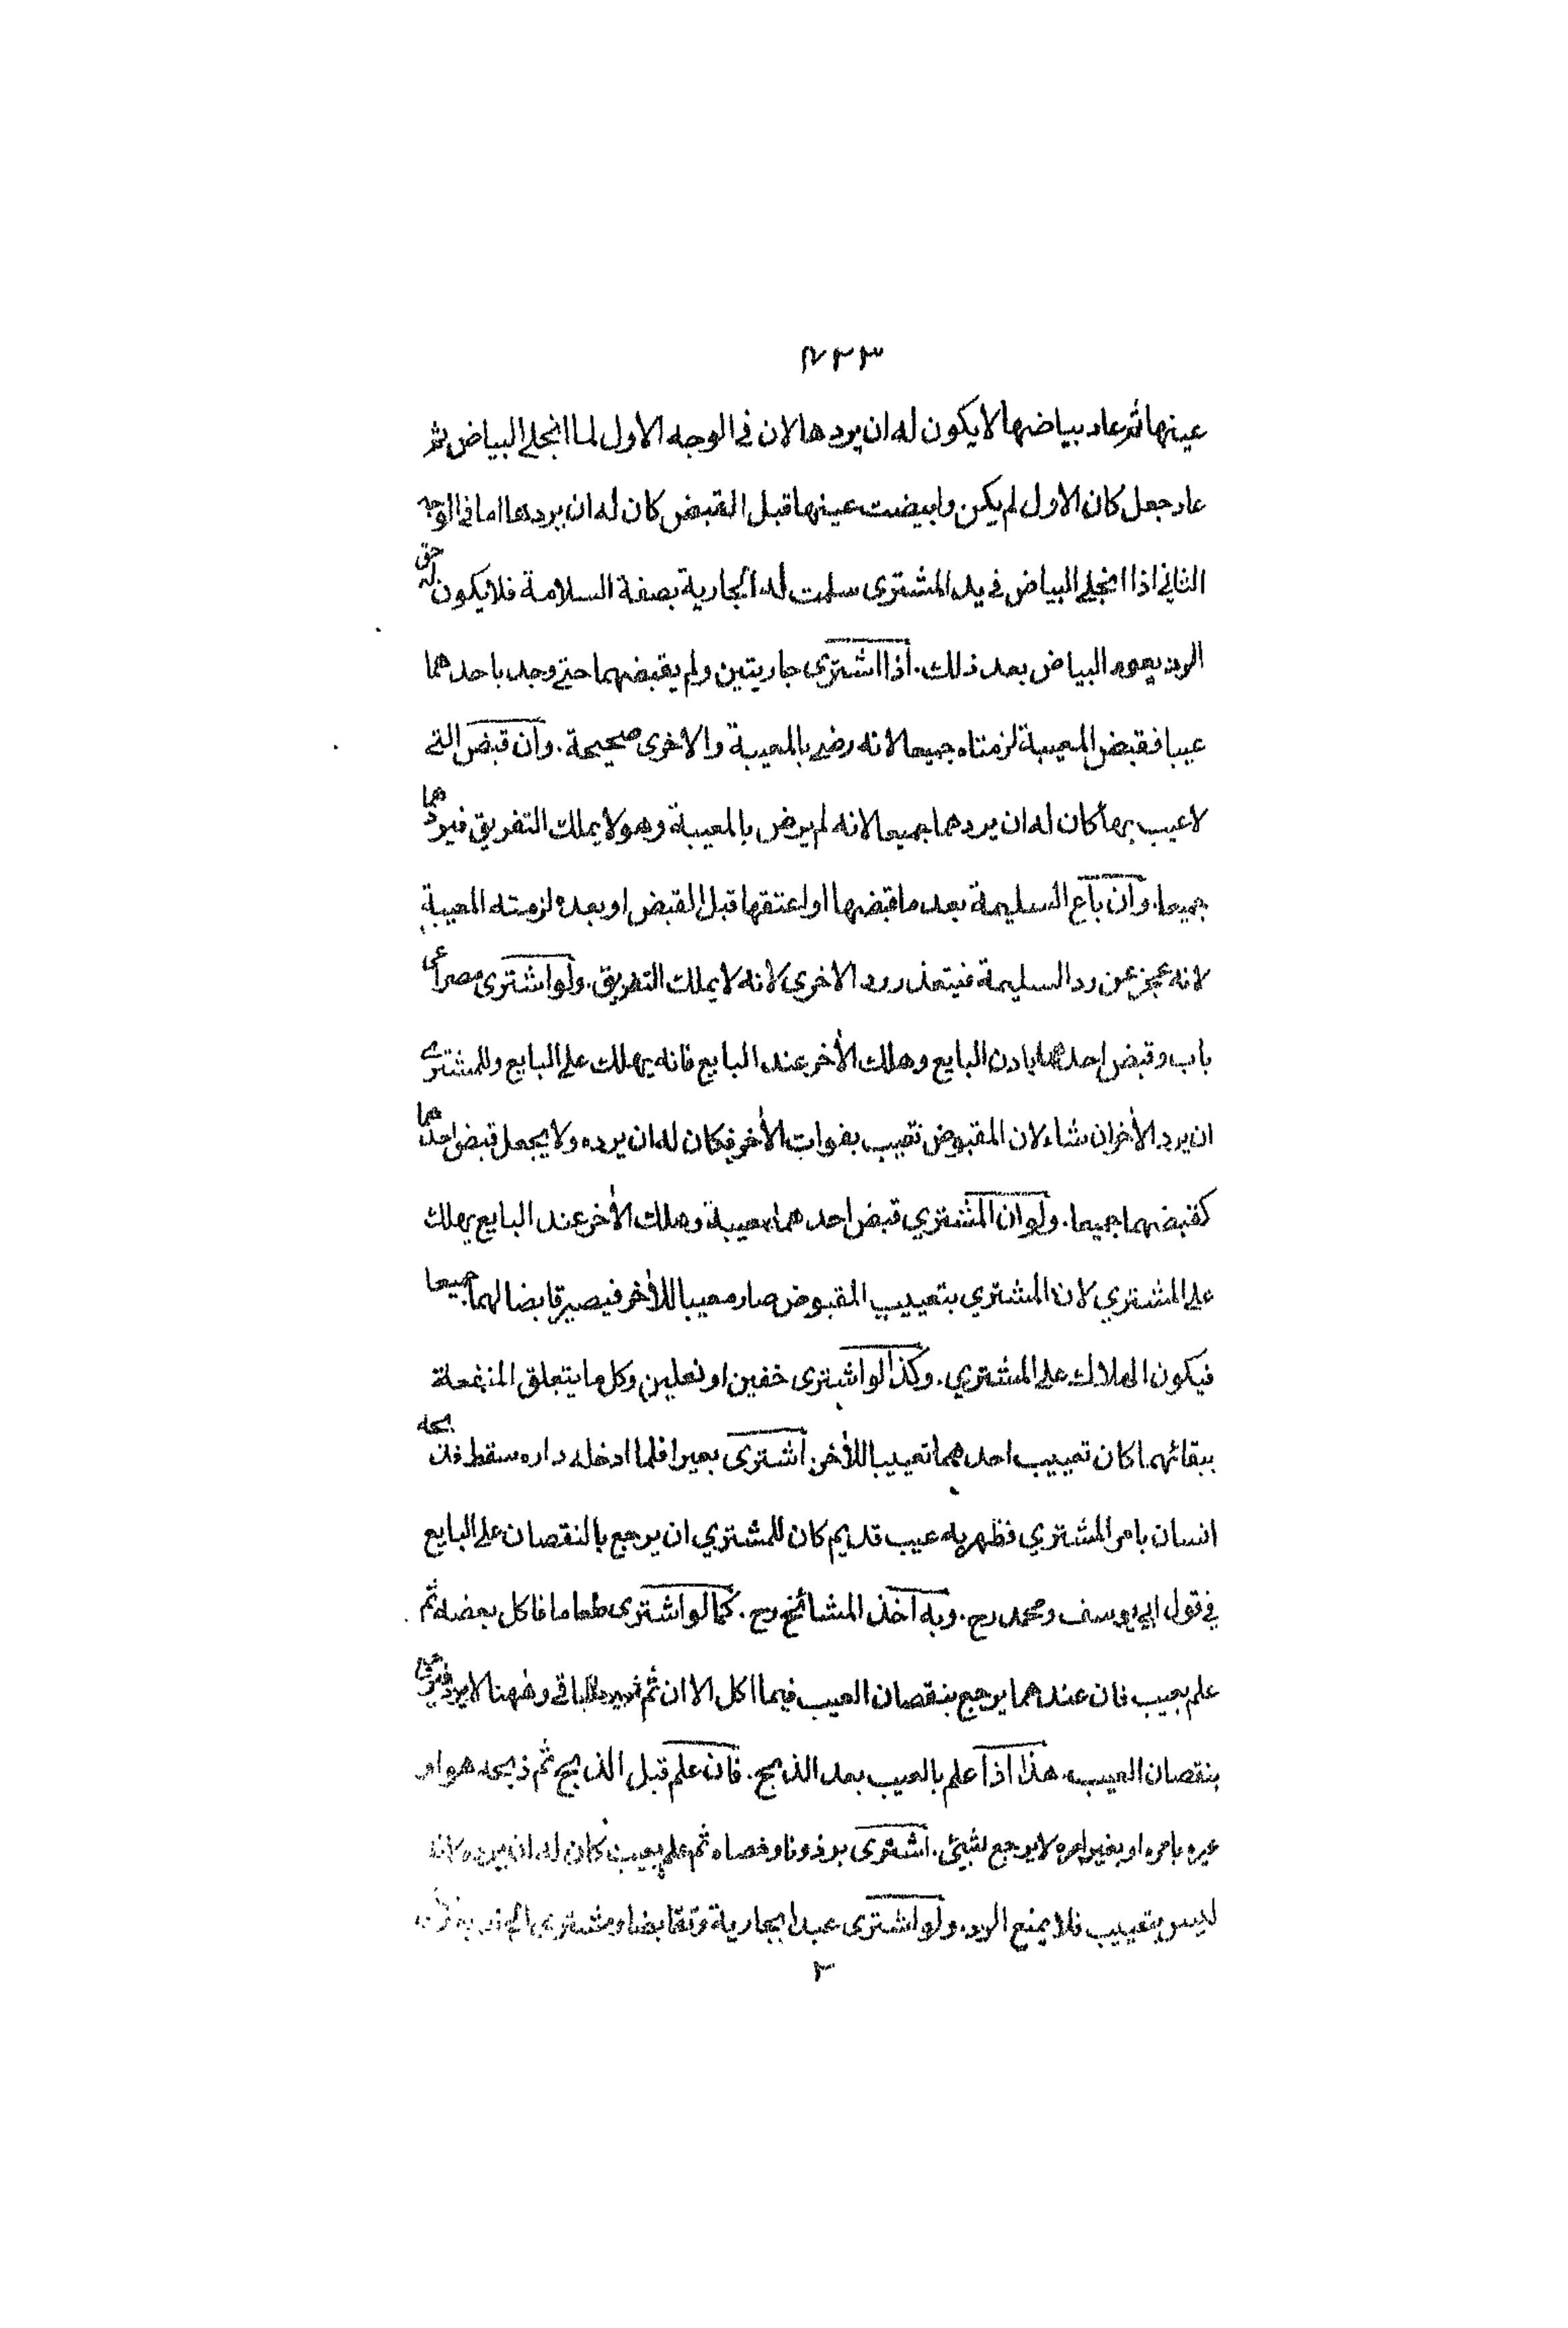 ٧٣٣
عينها ثم عاد بياضها لا يكون له ان يردها لان في الوجه الاول لما انجلي البياض ثم
عاد جعل كان الاول لم يكن وابيضت عينها قبل القبض كان له ان يردها اما في الوجه
الثاني اذا انجلي البياض في يد المشتري سلمت له الجارية بصفة السلامة فلا يكون له حق
الرد بعود البياض بعد ذلك. اذا اشترى جاريتين ولم يقبضهما حتي وجد باحدهما
عيبا فقبض المعيبة لزمتاه جميعا لانه رضي بالمعيبة والاخرى صحيحة. وان قبض التي
لا عيب بها كان له ان يردهما جميعا لانه لم يرض بالمعيبة وهو لا يملك التفريق فيردهما
جميعا. وان باع السليمة بعد ما قبضها او اعتقها قبل القبض او بعده لزمته المعيبة
لانه عجز عن رد السليمة فيتعذر رد الاخرى لانه لا يملك التفريق. ولو اشترى مصراعي
باب وقبض احدهما باذن البايع وهلك الأخر عند البايع فانه يهلك علي البايع وللمشتري
ان يرد الأخر ان شاء لان المقبوض تعيب بفوات الأخر فكان له ان يرده ولا يجعل قبض احدهما
كقبضهما جميعا. ولو ان المشتري قبض احدهما بعيبه وهلك الأخر عند البايع يهلك
علي المشتري لان المشتري بتعييب المقبوض صار معيبا للأخر فيصير قابضا لهما جميعا
فيكون الهلاك علي المشتري. وكذا لو اشترى خفين او نعلين وكل ما يتعلق المنفعلة
ببقائهما كان تعييب احدهما تعييبا للأخر. اشترى بعيرا فلما ادخله داره سقط فذبحه
انسان بامر المشتري فظهر به عيب قديم كان للمشتري ان يرجع بالنقصان علي البايع
في قول ابي يوسف ومحمد رح. وبه اخذ المشائخ رح. كما لو اشترى طعاما فاكل بعضه ثم
علم بعيب فان عندهما يرجع بنقصان العيب فيما اكل الا ان ثم يرد الباقي وههنا لا يرد فيرجع
بنقصان العيب. هذا اذا علم بالعيب بعد الذبح. فان علم قبل الذبح ثم ذبحه هو او
غيره بامره او بغير امره لا يرجع بشيئ. اشترى برذونا وخصاه ثم علم بعيب كان له ان يرده لانه
ليس بتعييب فلا يمنع الرد. ولو اشترى عبدا بجارية وتقابضا ومشتري
٢